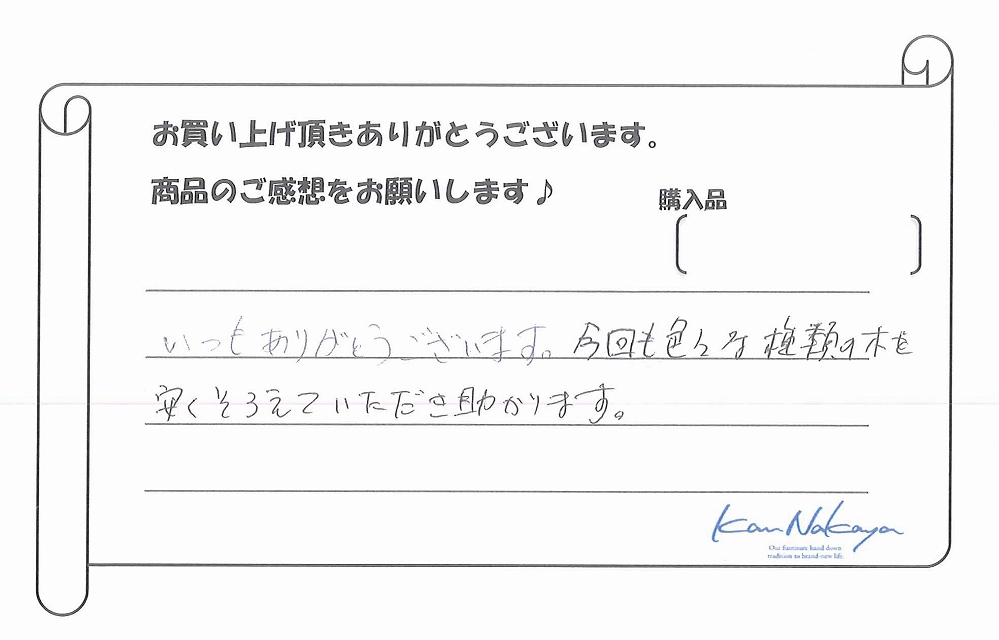 お買い上げ頂きありがとうございます。
商品のご感想をお願いします♪
購入品
いつもありがとうございます。今回も色々な種類の木を
安くそろえていただき助かります。
Kan Nakaya
Our furniture hand down
tradition to brand-new life.